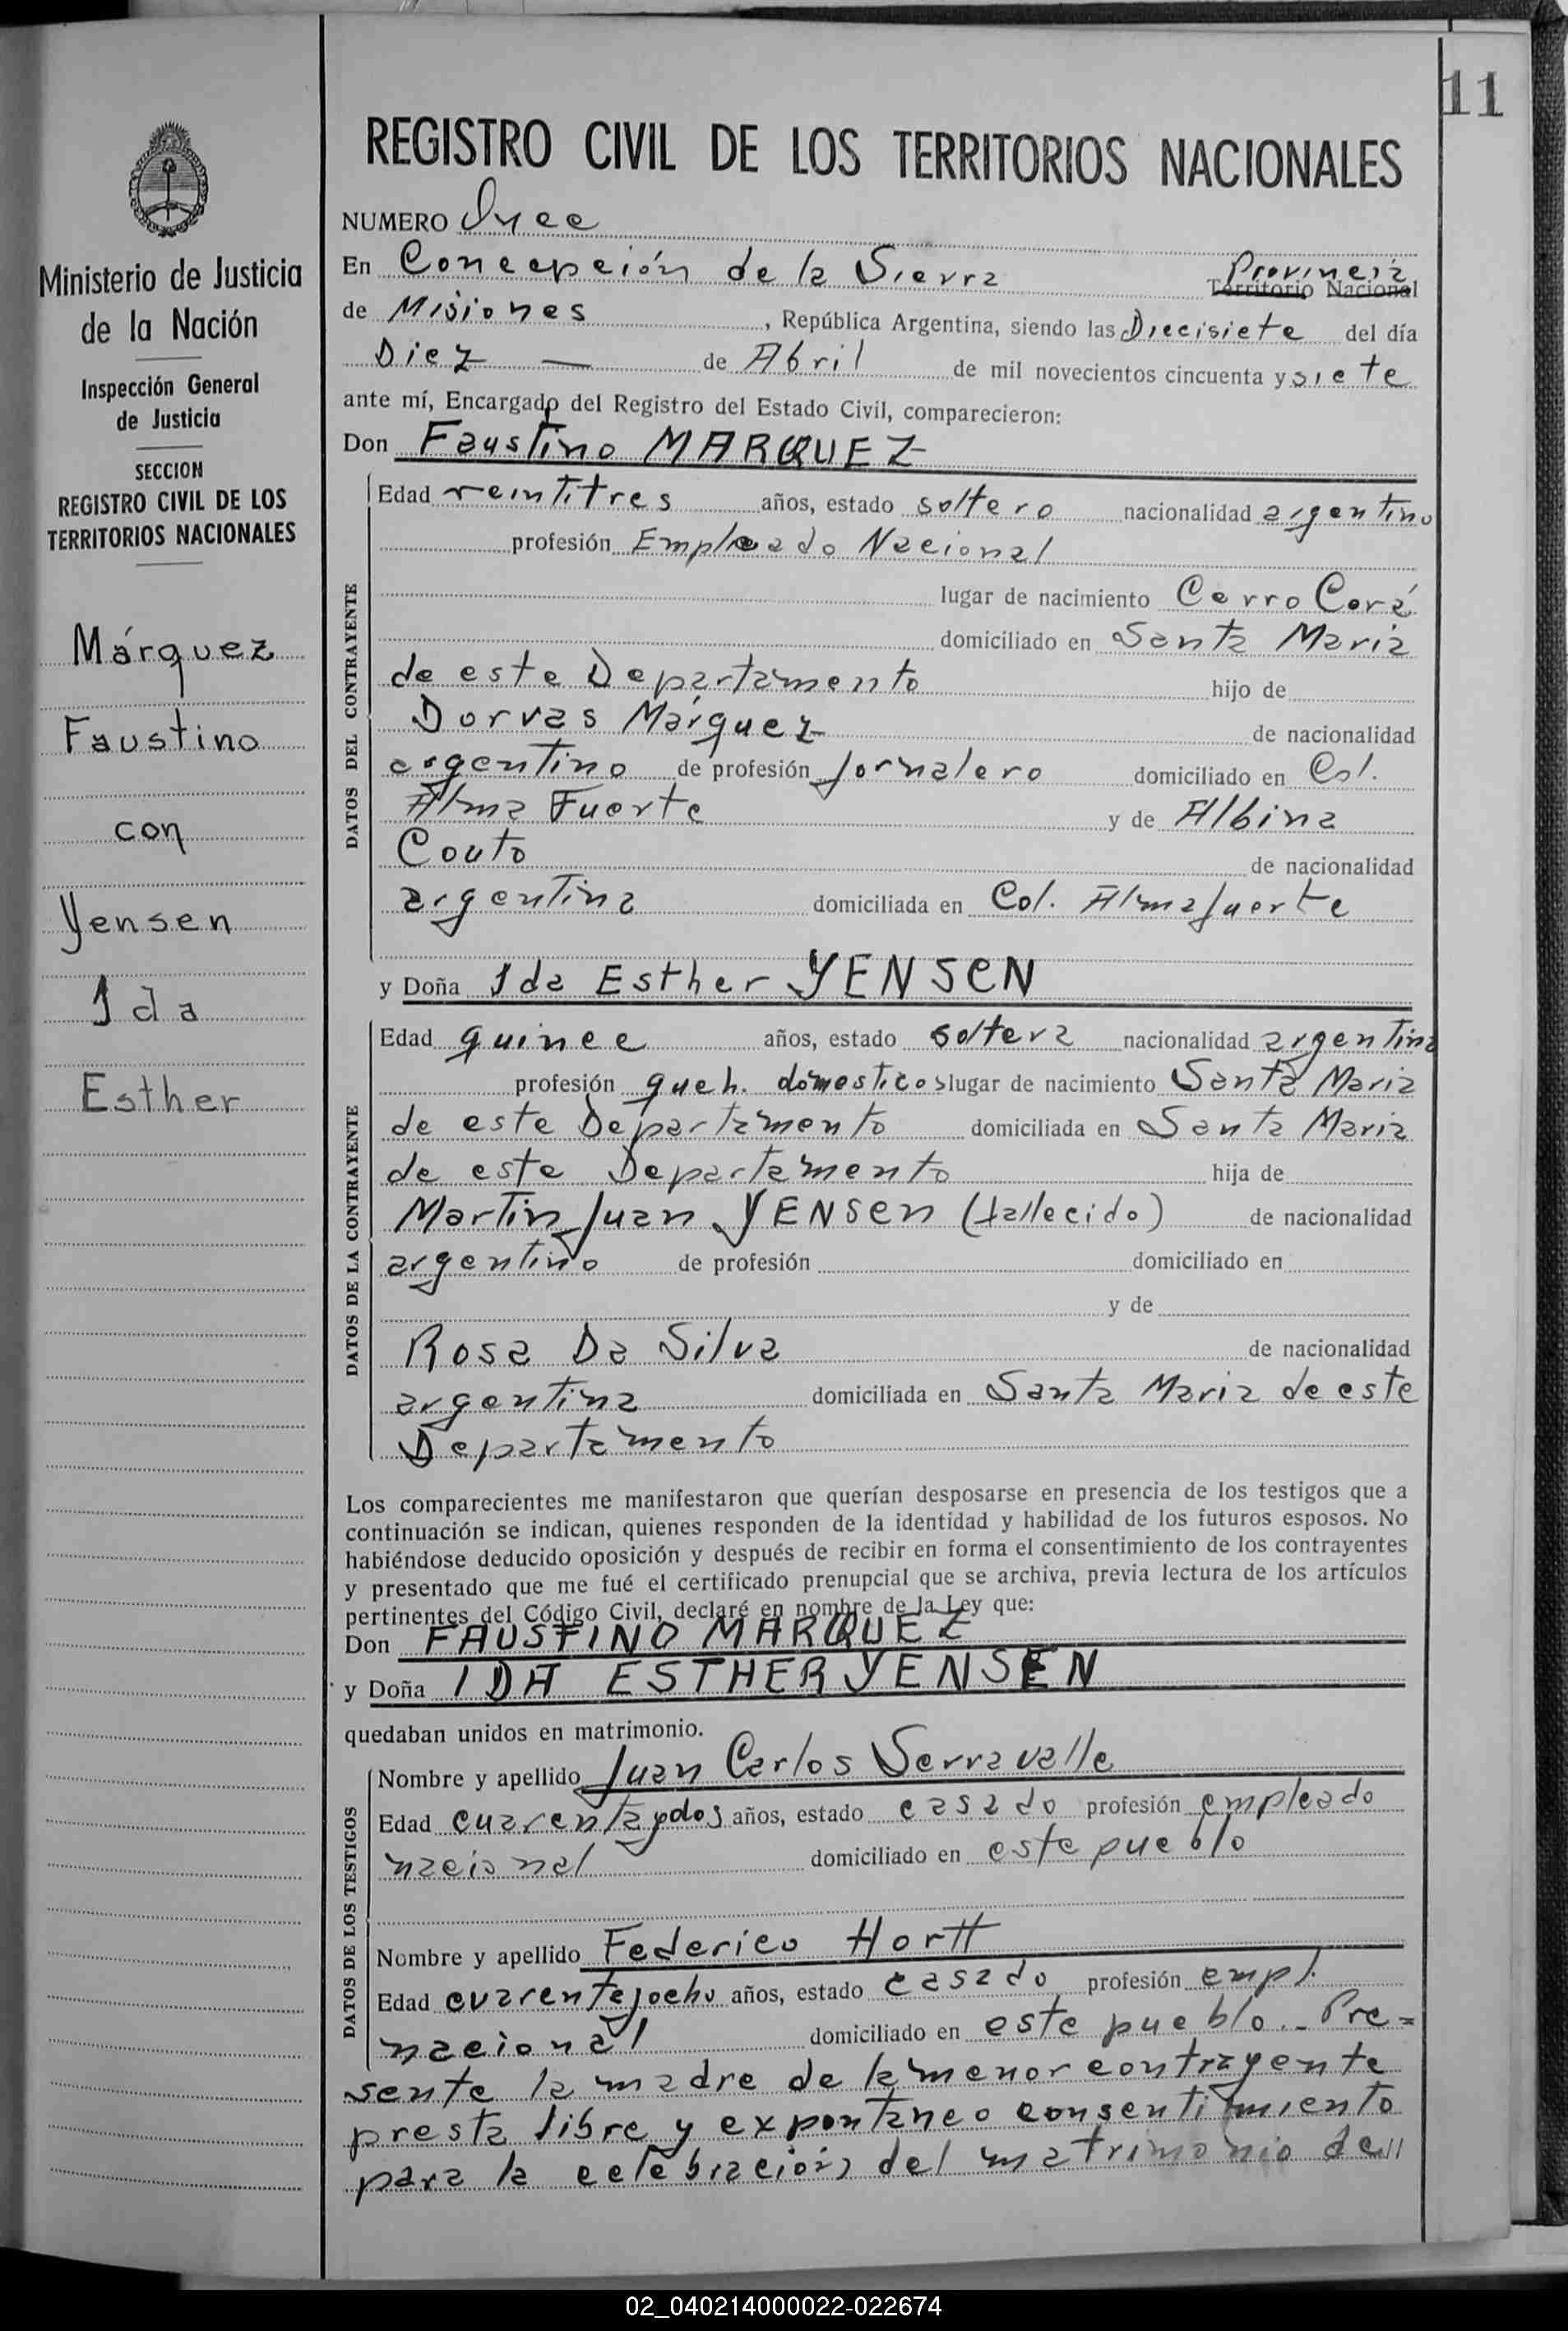 11
REGISTRO CIVIL DE LOS TERRITORIOS NACIONALES
Ministerio de Justicia
de la Nación
Inspección General
de Justicia
SECCION
REGISTRO CIVIL DE LOS
TERRITORIOS NACIONALES
Márquez
Faustino
con
Yensen
Ida
Esther
NUMERO Once
En Concepción de la Sierra Provincia
Territorio Nacional
de Misiones, República Argentina, siendo las Diecisiete del día
Diez — de Abril de mil novecientos cincuenta y siete
ante mí, Encargado del Registro del Estado Civil, comparecieron:
Don Faustino MARQUEZ
DATOS DEL CONTRAYENTE
Edad veintitres años, estado soltero nacionalidad argentino
profesión Empleado Nacional
lugar de nacimiento Cerro Corá
domiciliado en Santa Maria
de este Departamento hijo de
Dorvas Márquez de nacionalidad
argentino de profesión Jornalero domiciliado en Col.
Alma Fuerte y de Albina
Couto de nacionalidad
argentina domiciliada en Col. Almafuerte
y Doña Ida Esther YENSEN
DATOS DE LA CONTRAYENTE
Edad quince años, estado soltera nacionalidad argentina
profesión queh. domesticos lugar de nacimiento Santa Maria
de este Departamento domiciliada en Santa Maria
de este Departamento hija de
Martin Juan YENSEN (fallecido) de nacionalidad
argentino de profesión domiciliado en
y de
Rosa Da Silva de nacionalidad
argentina domiciliada en Santa Maria de este
Departamento
Los comparecientes me manifestaron que querían desposarse en presencia de los testigos que a
continuación se indican, quienes responden de la identidad y habilidad de los futuros esposos. No
habiéndose deducido oposición y después de recibir en forma el consentimiento de los contrayentes
y presentado que me fué el certificado prenupcial que se archiva, previa lectura de los artículos
pertinentes del Código Civil, declaré en nombre de la Ley que:
Don FAUSTINO MARQUEZ
y Doña IDA ESTHER YENSEN
quedaban unidos en matrimonio.
DATOS DE LOS TESTIGOS
Nombre y apellido Juan Carlos Serravalle
Edad cuarenta y dos años, estado casado profesión empleado
nacional domiciliado en este pueblo
Nombre y apellido Federico Hortt
Edad cuarenta y ocho años, estado casado profesión empl.
nacional domiciliado en este pueblo.- Pre=
sente la madre de la menor contrayente
presta libre y expontáneo consentimiento
para la celebración del matrimonio de
02_040214000022-022674